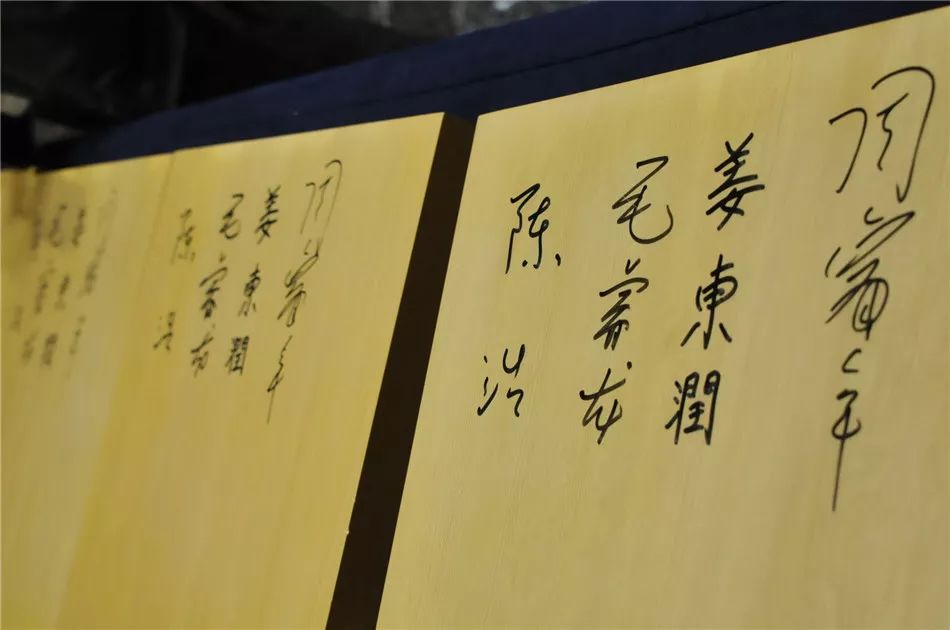 周睿羊
姜東潤
毛睿龙
陈浩
周睿羊
姜東潤
毛睿龙
陈浩